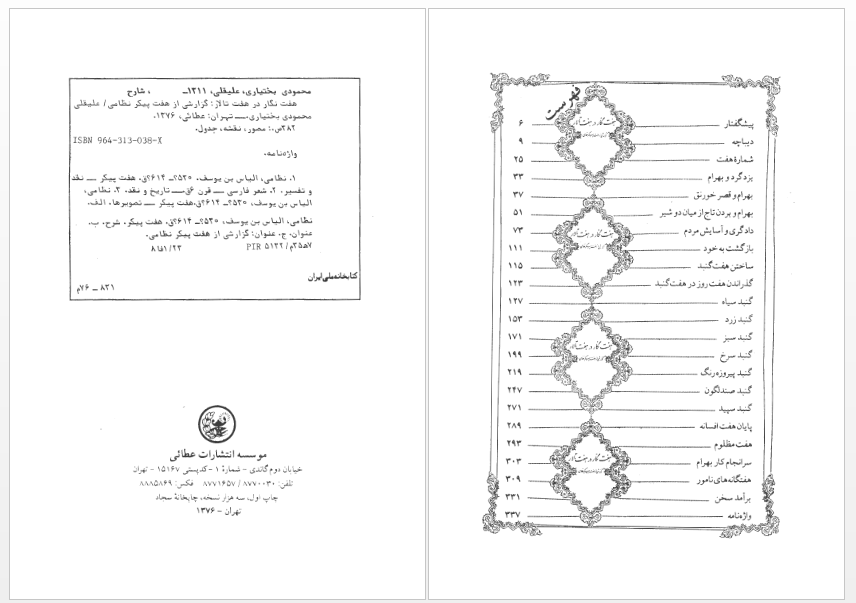 محمودی بختیاری، علیقلی، ۱۳۱۱ـ ، شارح
هفت نگار در هفت تالار: گزارشی از هفت پیکر نظامی/ علیقلی
محمودی بختیاری.ـــ تهران: عطائی، ۱۳۷۶.
۳۸۲ص.: مصور، نقشه، جدول.
ISBN 964-313-038-X
واژه‌نامه.
۱. نظامی، الیاس بن یوسف، ۵۳۰؟ـ ۶۱۴؟ق. هفت پیکر ـــ نقد
و تفسیر. ۲. شعر فارسی ـــ قرن ۶ق.ـــ تاریخ و نقد. ۳. نظامی،
الیاس بن یوسف، ۵۳۰؟ـ ۶۱۴؟ق. هفت پیکر ـــ تصویرها. الف.
نظامی، الیاس بن یوسف، ۵۳۰؟ـ ۶۱۴؟ق. هفت پیکر. شرح. ب.
عنوان. ج. عنوان: گزارشی از هفت پیکر نظامی.
PIR ۵۱۳۲/م۳۵ه۷
کتابخانه ملی ایران
۸۳۱ ـ ۷۶م
موسسه انتشارات عطائی
خیابان دوم گاندی - شمارهٔ ۱ - کدپستی ۱۵۱۶۷ - تهران
تلفن: ۸۷۷۰۰۳۰ / ۸۷۷۱۶۵۷ فکس: ۸۸۸۵۸۶۹
چاپ اول، سه هزار نسخه، چاپخانهٔ سجاد
تهران - ۱۳۷۶
فهرست
پیشگفتار ۶
دیباچه ۹
شمارهٔ هفت ۲۵
یزدگرد و بهرام ۳۳
بهرام و قصر خورنق ۳۷
بهرام و بردن تاج از میان دو شیر ۵۱
دادگری و آسایش مردم ۷۳
بازگشت به خود ۱۱۱
ساختن هفت گنبد ۱۱۵
گذراندن هفت روز در هفت گنبد ۱۲۳
گنبد سیاه ۱۲۷
گنبد زرد ۱۵۳
گنبد سبز ۱۷۱
گنبد سرخ ۱۹۹
گنبد پیروزه رنگ ۲۱۹
گنبد صندلگون ۲۴۷
گنبد سپید ۲۷۱
پایان هفت افسانه ۲۸۹
هفت مظلوم ۲۹۳
سرانجام کار بهرام ۳۰۳
هفتگانه‌های نامور ۳۰۹
برآمد سخن ۳۳۱
واژه‌نامه ۳۳۷
هفت نگار در هفت تالار
هفت نگار در هفت تالار
هفت نگار در هفت تالار
هفت نگار در هفت تالار